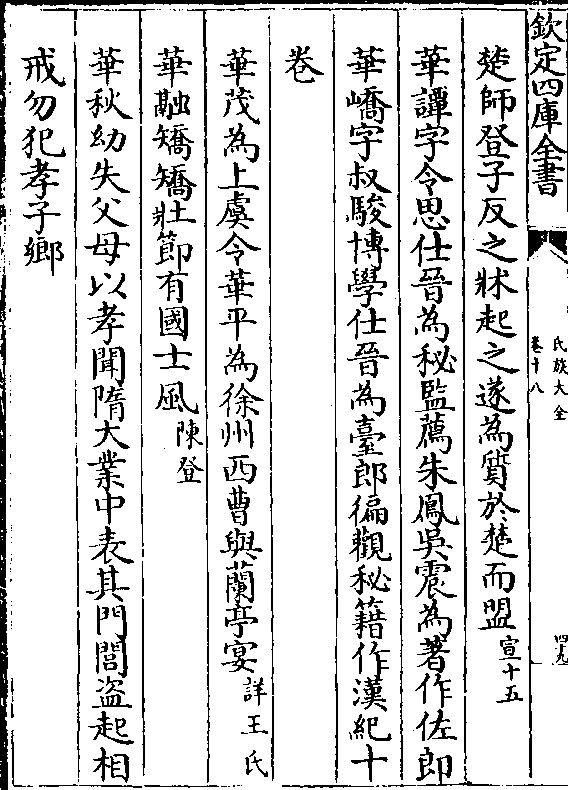 欽定四庫全書
氏族大全
卷十八
四九
楚師登子反之牀起之遂為質於楚而盟宣十五
華譚字令思仕晉為秘監薦朱鳳吳震為著作佐郎
華嶠字叔駿博學仕晉為臺郎徧觀秘籍作漢紀十
卷
華茂為上虞令華平為徐州西曹與蘭亭宴詳王氏
華融矯矯壯節有國士風陳登
華秋幼失父母以孝聞隋大業中表其門閭盜起相
戒勿犯孝子鄉